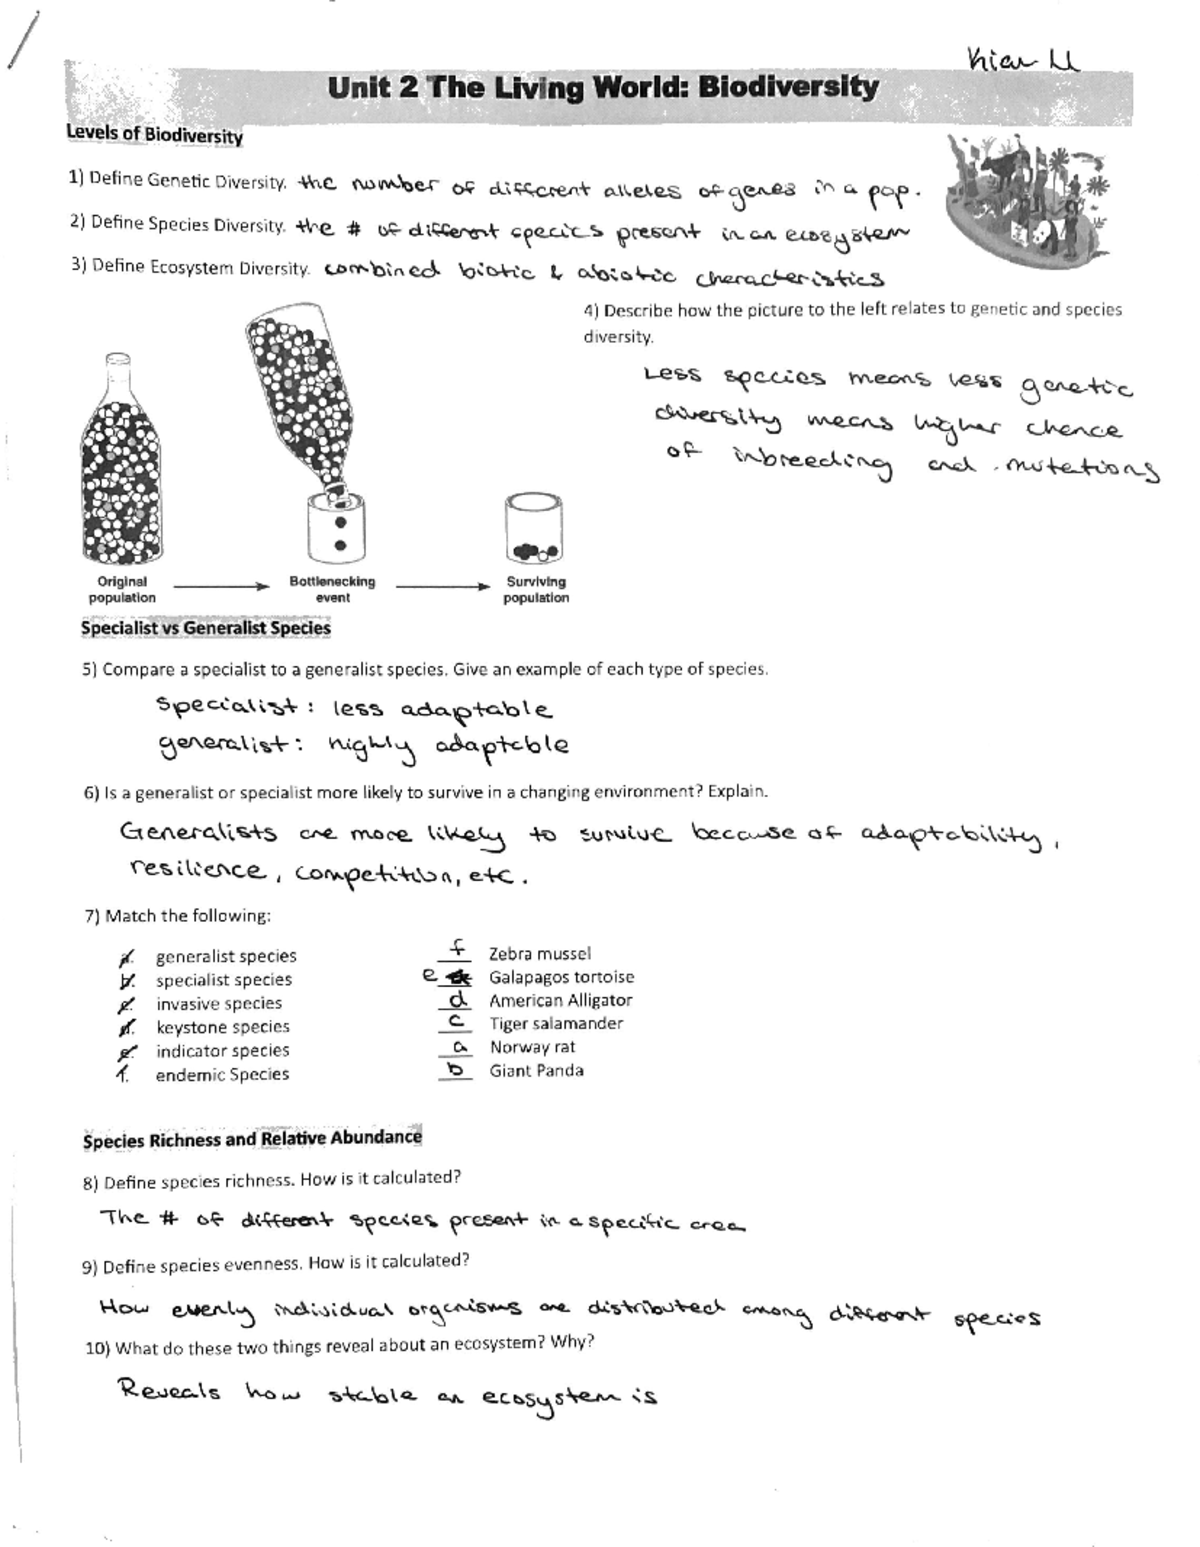 Kian U
Unit 2 The Living World: Biodiversity
Levels of Biodiversity
1) Define Genetic Diversity. the number of different alleles of genes in a pop.
2) Define Species Diversity. the # of different species present in an ecosystem
3) Define Ecosystem Diversity. combined biotic & abiotic characteristics
4) Describe how the picture to the left relates to genetic and species
diversity.
Less species means less genetic
diversity means higher chance
of inbreeding and mutations
Original
population
Bottlenecking
event
Surviving
population
Specialist vs Generalist Species
5) Compare a specialist to a generalist species. Give an example of each type of species.
specialist: less adaptable
generalist: highly adaptable
6) Is a generalist or specialist more likely to survive in a changing environment? Explain.
Generalists are more likely to survive because of adaptability,
resilience, competition, etc.
7) Match the following:
a. generalist species f Zebra mussel
b. specialist species e Galapagos tortoise
c. invasive species d American Alligator
d. keystone species c Tiger salamander
e. indicator species a Norway rat
f. endemic Species b Giant Panda
Species Richness and Relative Abundance
8) Define species richness. How is it calculated?
The # of different species present in a specific area
9) Define species evenness. How is it calculated?
How evenly individual organisms are distributed among different species
10) What do these two things reveal about an ecosystem? Why?
Reveals how stable an ecosystem is